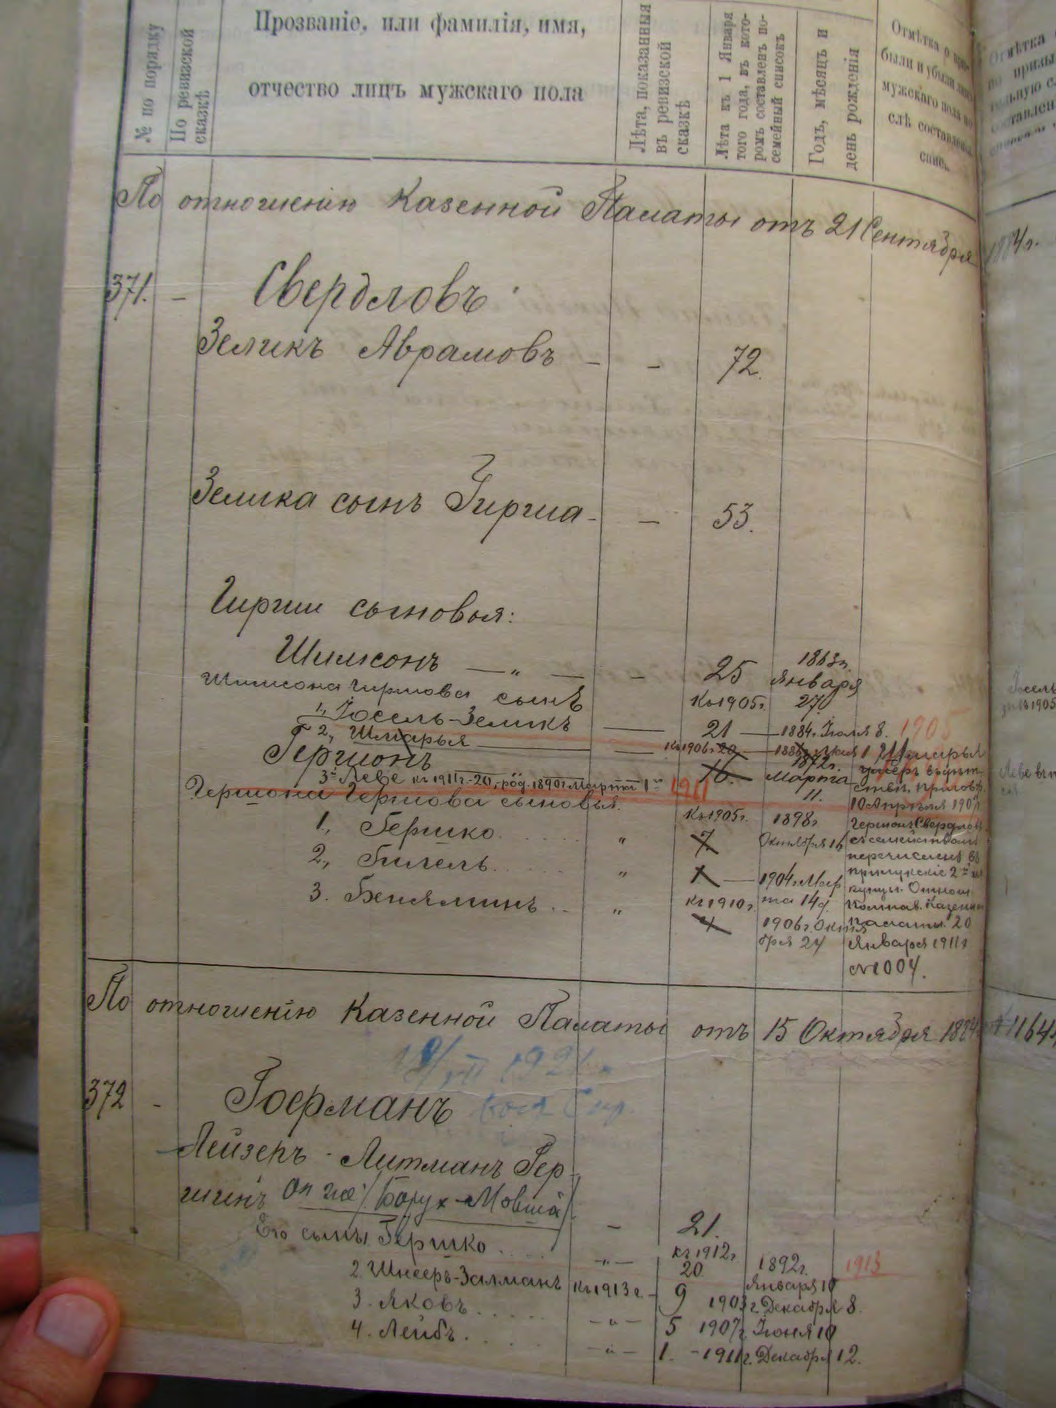 № по порядку
По ревизской сказкѣ
Прозваніе, или фамилія, имя,
отчество лицъ мужскаго пола
Лѣта, показанныя въ ревизской сказкѣ
Лѣта къ 1 Января того года, въ которомъ составленъ посемейный списокъ
Годъ, мѣсяцъ и день рожденія
Отмѣтка о
были и убыли лицъ
мужскаго пола по-
слѣ составленія
По отношенію Казенной Палаты отъ 21 Сентября
371. — Свердловъ
Зеликъ Аврамовъ — — 72.
Зелика сынъ Гирша — — 53.
Гирши сыновья:
Шимсонъ — „ — — 25 1863 г. Января 27
Шимсона Гиршова сынъ Къ 1905 г.
1, Іосель-Зеликъ — 21 — 1884 г. Іюля 8. 1905
2, Шмарья — къ 1906 г. 20
Гершонъ — 16. 1872 г. Марта 11.
3 Леве къ 1911 г. - 20, род. 1890 г. Марта 1 1911
Гершона Гершова сыновья. Къ 1905 г.
1, Гершко. „ 7 1898 г. Октября 16
2, Гилель. „ 1 — 1904 г. Мар та 14 д.
3. Беняминъ. „ къ 1910 г. 4 1906 г. Октя бря 24
Шмарья
умеръ
10 Апрѣля 190
Гершонъ Свердловъ
съ семействомъ
перечисленъ въ
прилукскіе 2
купцы. Отнош.
Полтав. Казенной
Палаты 20
Января 1911 г
№ 1004.
По отношенію Казенной Палаты отъ 15 Октября 1884 № 1164
1921
372 - Гоерманъ
Лейзеръ-Литманъ Гер-
шинъ Он же /Борух-Мовша/ — 21.
Его сыны Гершко. — „ — къ 1912 г. 20 1892 г. Января 10 1913
2. Шнееръ-Залманъ къ 1913 г. — 9 1903 г. Декабря 8.
3. Яковъ. — „ — 5 1907 г. Іюня 10
4. Лейбъ. — „ — 1. — 1911 г. Декабря 12.